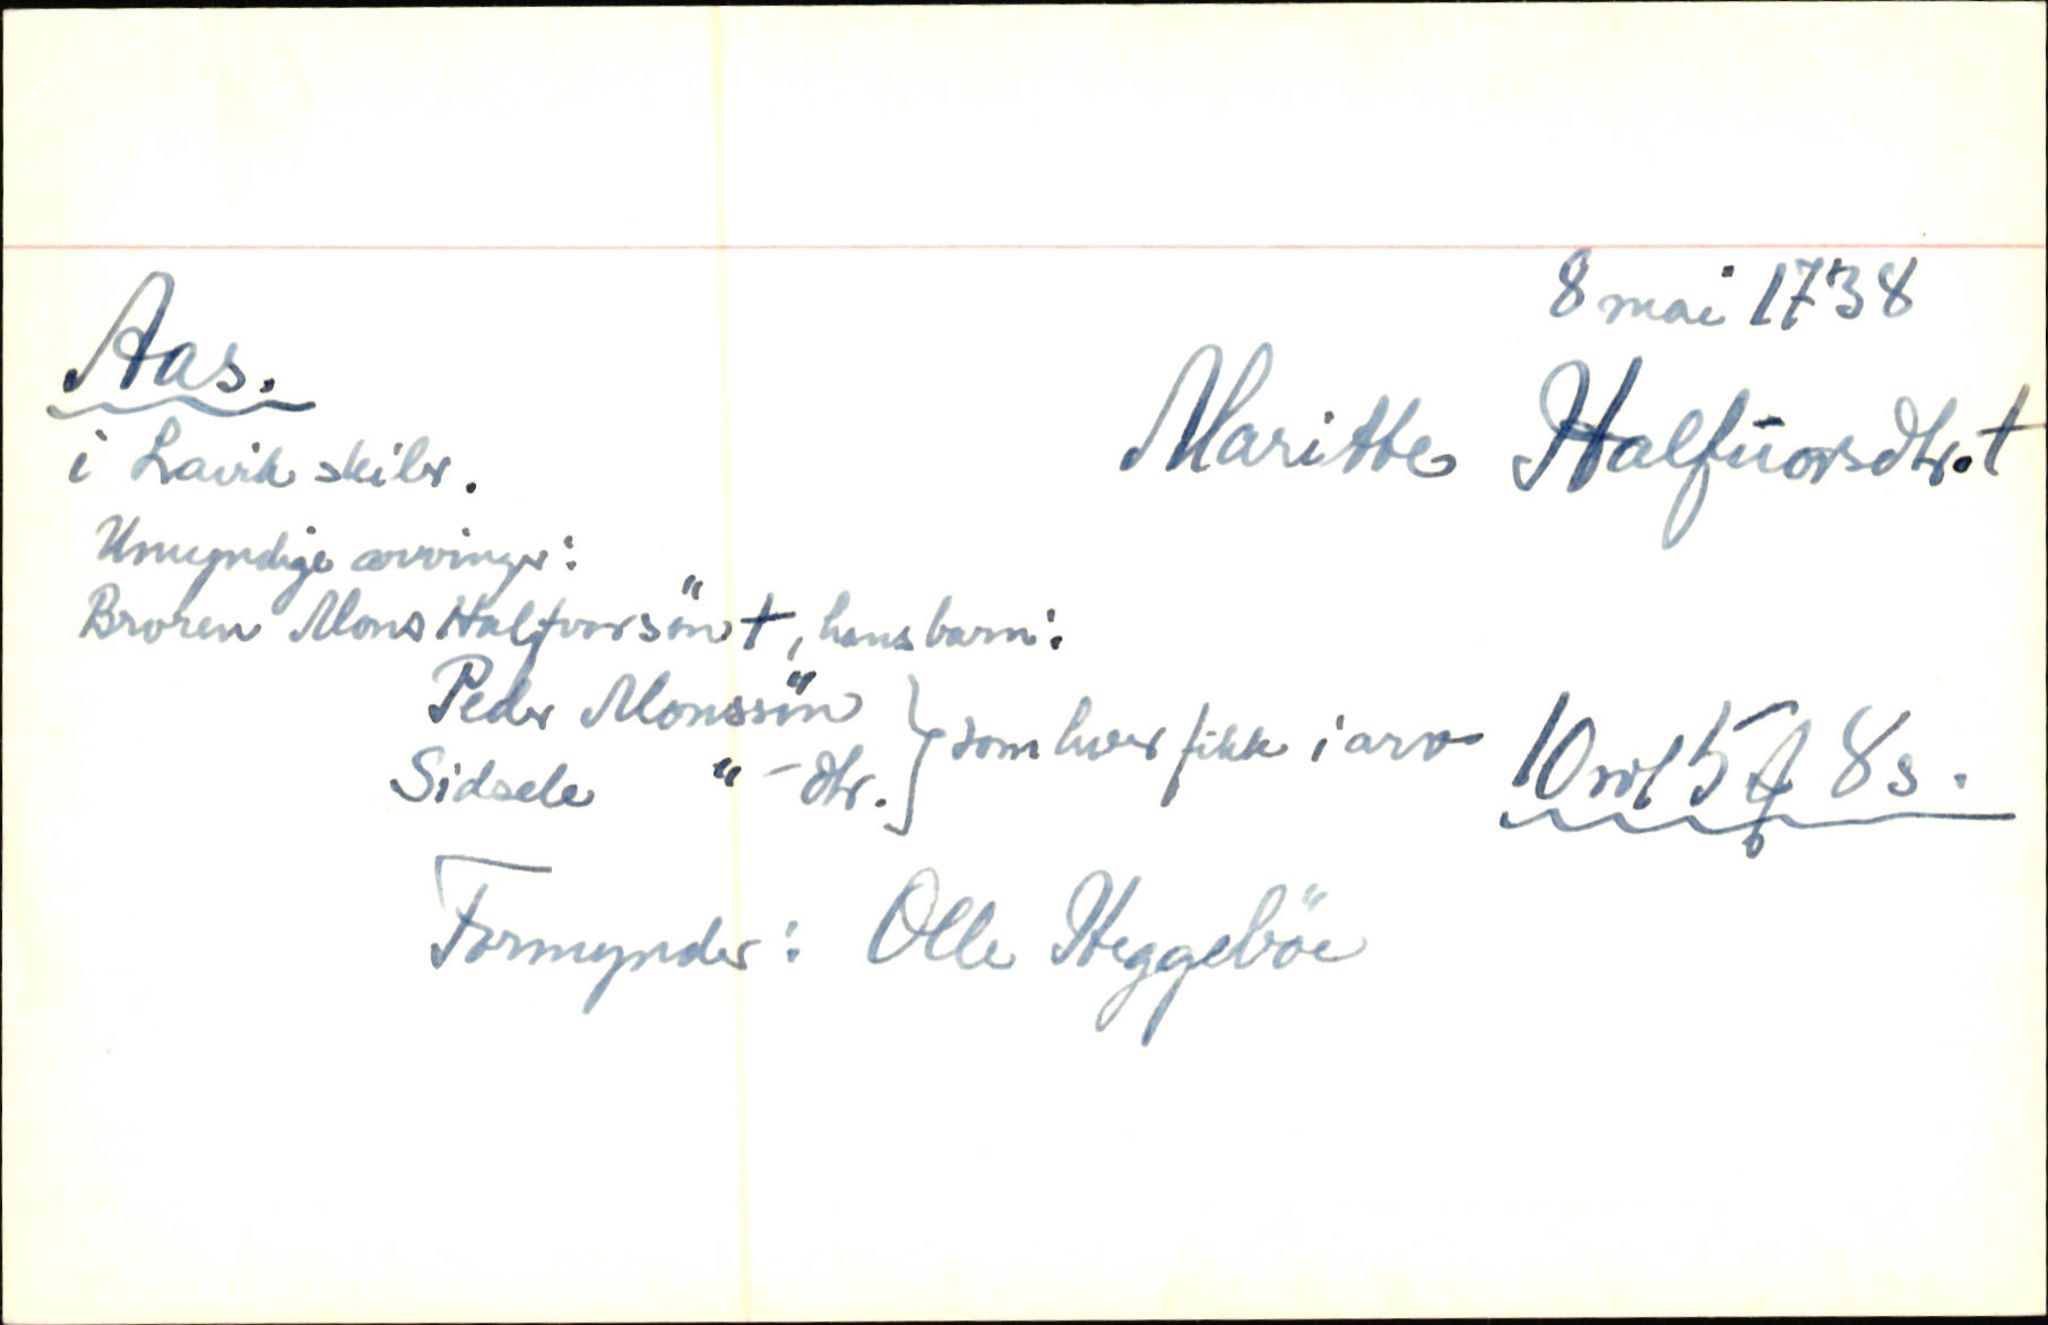 8 mai 1738
Aas.
Maritte Halfuorsdtr. †
i Lavik skibr.
Umyndige arvinger:
Broren Mons Halfvorsön †, hans barn:
Peder Monssön
Sidsele " - dtr. } som hver fikk i arv 10 8 s.
Formynder: Olle Heggeböe